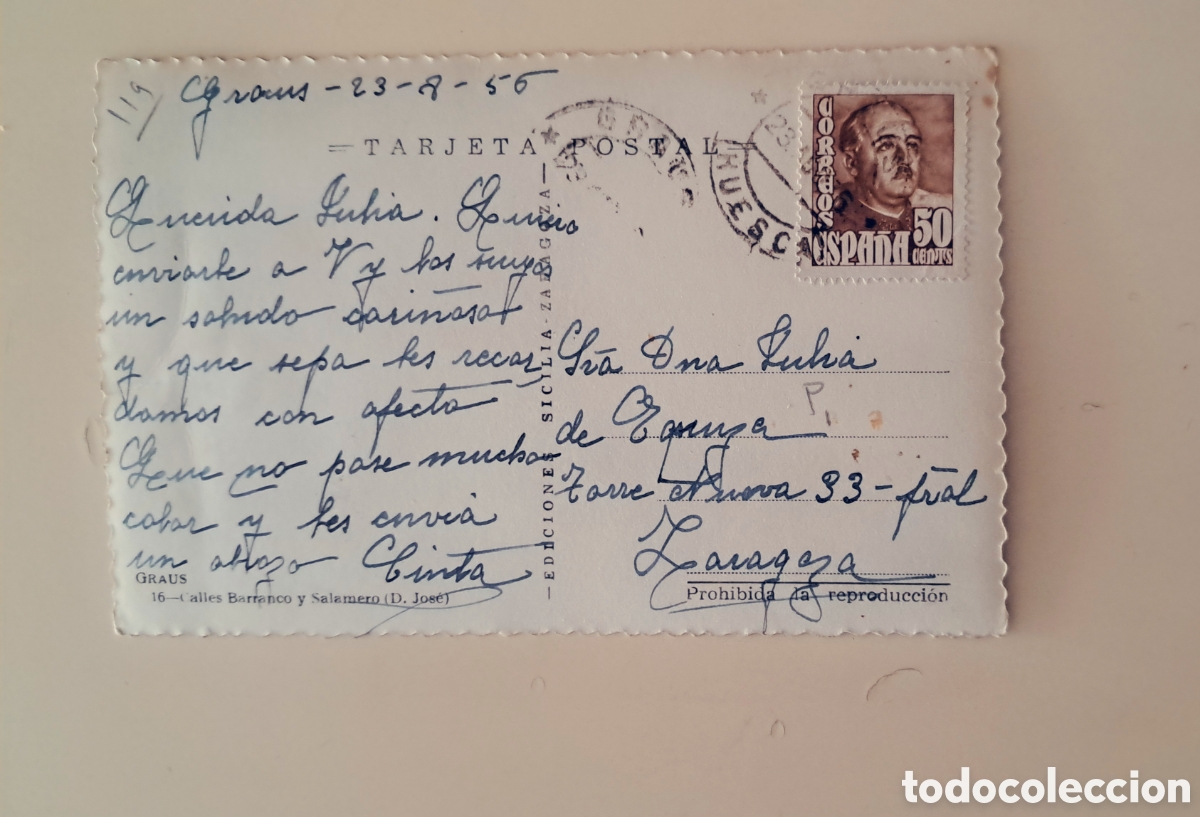 119
Graus - 23-8-56
TARJETA POSTAL
Querida Julia. Quiero
enviarte a V y los suyos
un saludo cariñoso
y que sepa les recor
damos con afecto
Que no pase mucho
calor y les envia
un abrazo Cinta
GRAUS
16—Calles Barranco y Salamero (D. José)
— EDICIONES SICILIA - ZARAGOZA —
GRAUS
HUESCA
CORREOS
ESPAÑA 50
CENTS
Sra Dna Julia
de
Torre Nueva 33 - pral
Zaragoza
Prohibida la reproducción
todocoleccion